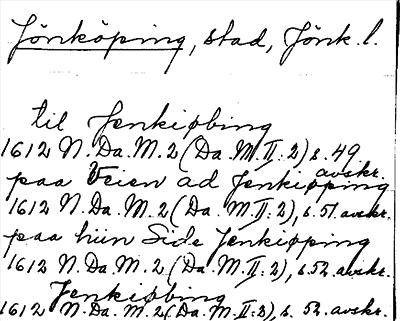 Jönköping, stad, Jönk. l.
til Jenkiøbing
1612 N. Da. M. 2 (Da. M. II: 2) s. 49. avskr.
paa Veien ad Jenkiøpping
1612 N. Da. M. 2 (Da. M. II: 2), s. 51. avskr.
paa hiin Side Jenkiøpping
1612 N. Da. M. 2 (Da. M. II: 2), s. 52. avskr.
Jenkiøbing
1612 N. Da. M. 2 (Da. M. II: 2), s. 52. avskr.